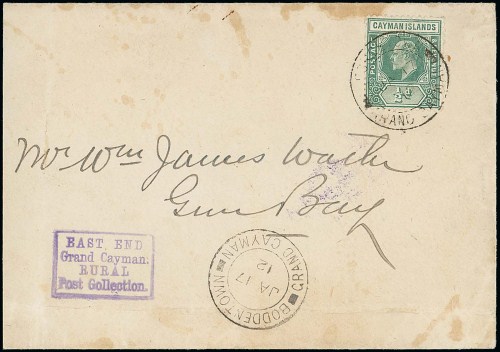 CAYMAN ISLANDS
POSTAGE
½D
GRAND
Mr Wm James Watler
Gun Bay
EAST END
Grand Cayman.
RURAL
Post Collection.
GRAND CAYMAN
JA 17
12
BODDENTOWN